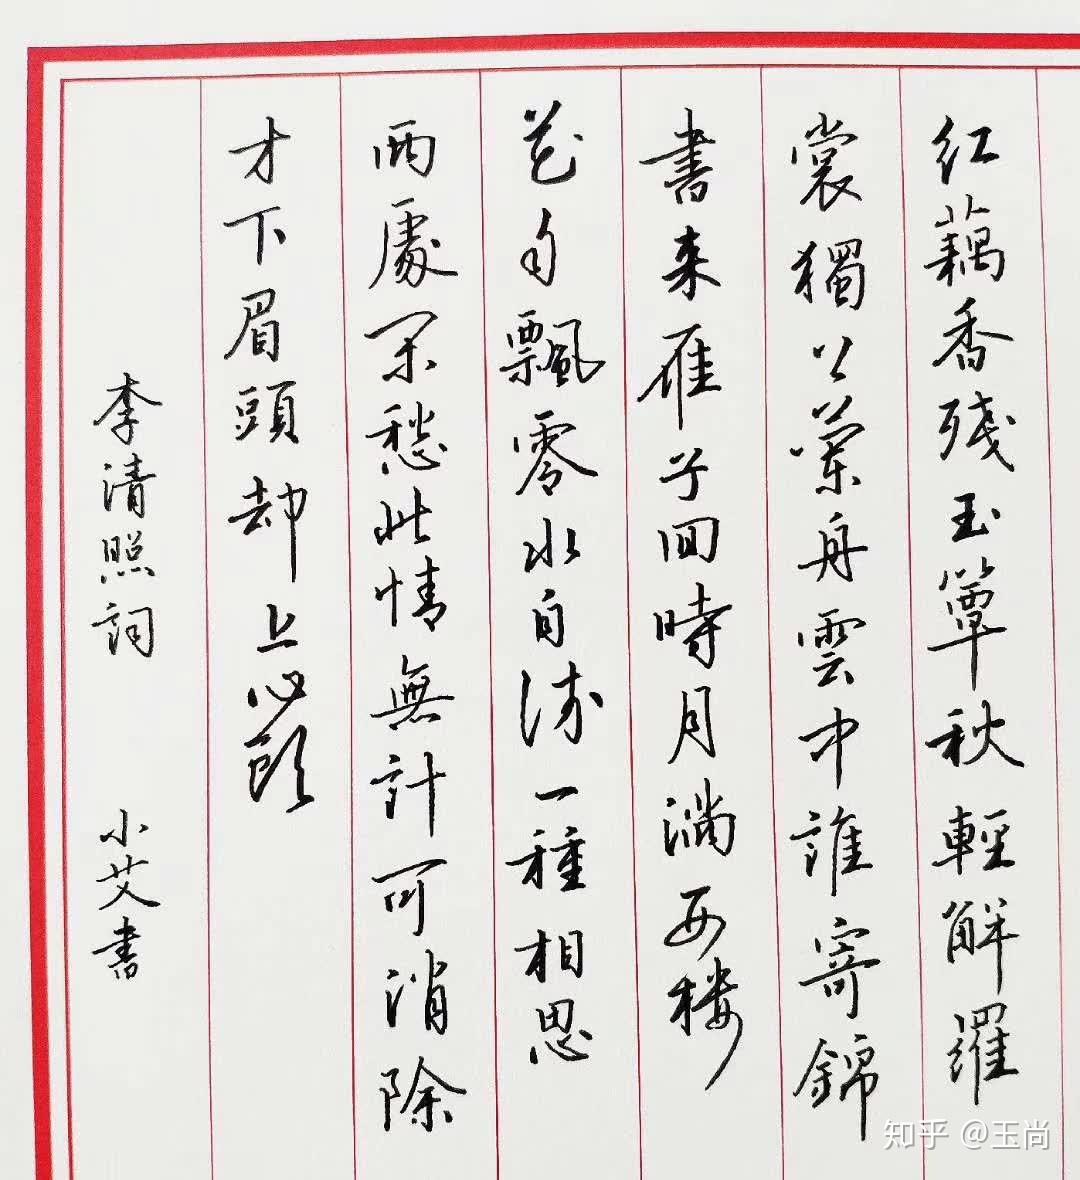 红藕香残玉簟秋輕解羅
裳獨上蘭舟雲中誰寄錦
書来雁子回時月满西楼
花自飄零水自流一種相思
兩處闲愁此情無計可消除
才下眉頭却上心頭
李清照詞 小艾書
知乎 @玉尚